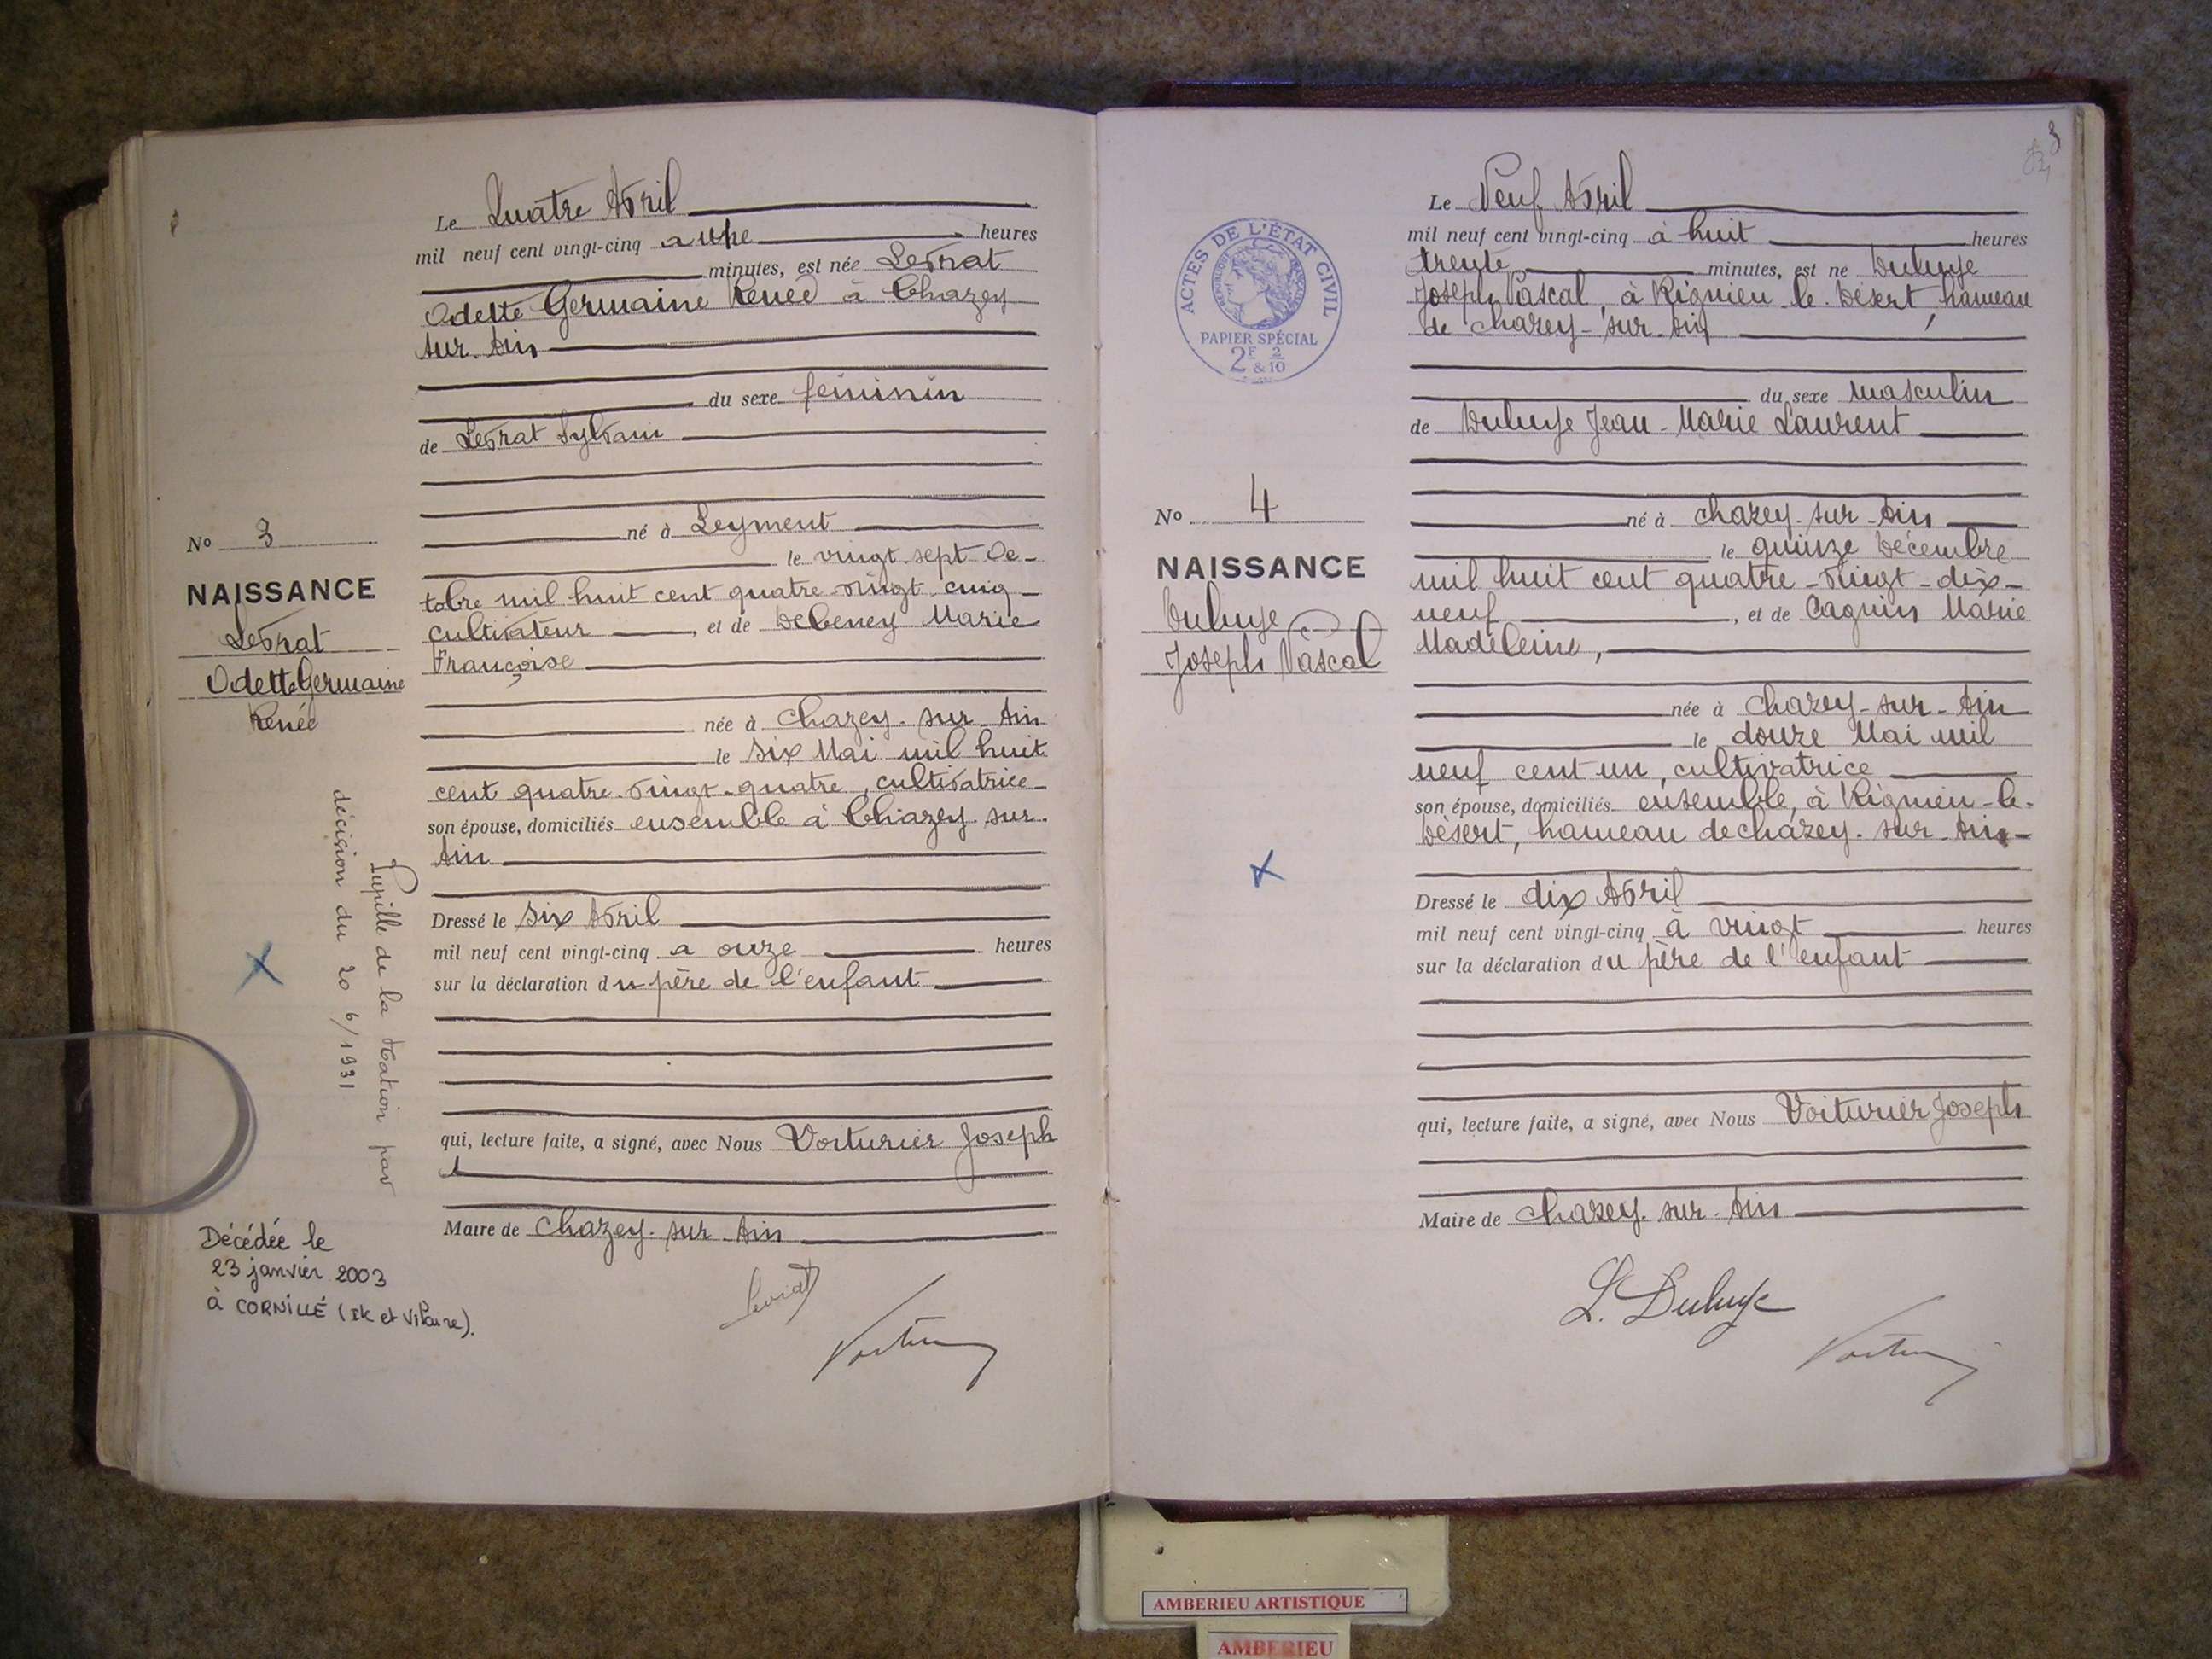 Le Quatre Avril
mil neuf cent vingt-cinq a une heures
minutes, est née Levrat
Odette Germaine Renée à Chazey
sur Ain
du sexe féminin
de Levrat Sylvain
né à Leyment
le vingt-sept Oc-
tobre mil huit cent quatre-vingt-cinq
cultivateur, et de Debeney Marie
Françoise
née à Chazey-sur-Ain
le six Mai mil huit
cent quatre-vingt-quatre, cultivatrice
son épouse, domiciliés ensemble à Chazey-sur-
Ain
Dressé le six Avril
mil neuf cent vingt-cinq a onze heures
sur la déclaration du père de l'enfant
qui, lecture faite, a signé, avec Nous Voiturier Joseph
Maire de Chazey-sur-Ain
Levrat
No 3
NAISSANCE
Levrat
Odette Germaine
Renée
Pupille de la Nation par
décision du 20 6/1931
Décédée le
23 janvier 2003
à CORNILLÉ (Ille et Vilaine).
3
ACTES DE L'ÉTAT CIVIL
RÉPUBLIQUE FRANÇAISE
PAPIER SPÉCIAL
2F & 2/10
No 4
NAISSANCE
Duluye
Joseph Pascal
Le Neuf Avril
mil neuf cent vingt-cinq à huit heures
trente minutes, est né Duluye
Joseph Pascal, à Rignieu-le-Désert, hameau
de Chazey-sur-Ain
du sexe masculin
de Duluye Jean-Marie Laurent
né à Chazey-sur-Ain
le quinze Décembre
mil huit cent quatre-vingt-dix-
neuf, et de Cagnin Marie
Madeleine,
née à Chazey-sur-Ain
le douze Mai mil
neuf cent un, cultivatrice
son épouse, domiciliés ensemble, à Rignieu-le-
Désert, hameau de Chazey-sur-Ain
Dressé le dix Avril
mil neuf cent vingt-cinq à vingt heures
sur la déclaration du père de l'enfant
qui, lecture faite, a signé, avec Nous Voiturier Joseph
Maire de Chazey-sur-Ain
L. Duluye
AMBERIEU ARTISTIQUE
AMBERIEU